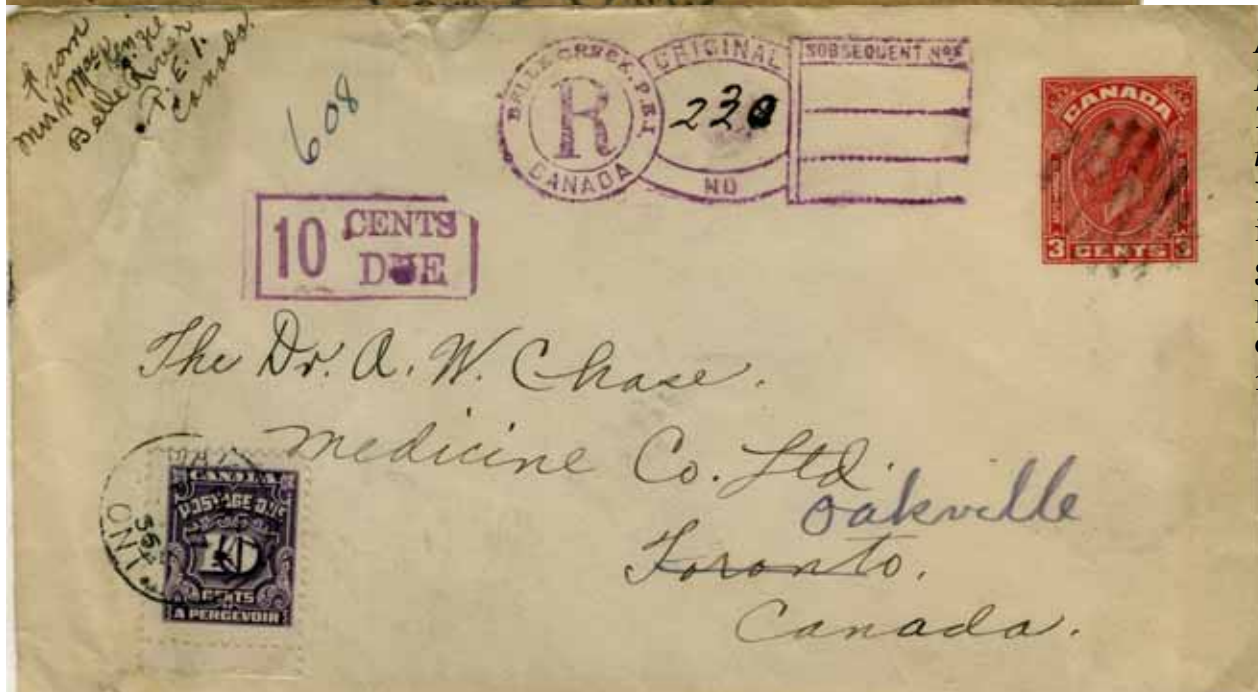 from
Mrs K. MacKenzie
Belle River
P. E. I.
Canada.
608
BELLE CREEK, P.E.I
R
CANADA
ORIGINAL
220
NO
SUBSEQUENT NOS
CANADA
3 CENTS 3
10 CENTS
DUE
The Dr. A. W. Chase.
Medicine Co. Ltd.
Oakville
Toronto.
Canada.
CANADA
POSTAGE DUE
10
CENTS
A PERCEVOIR
ONT